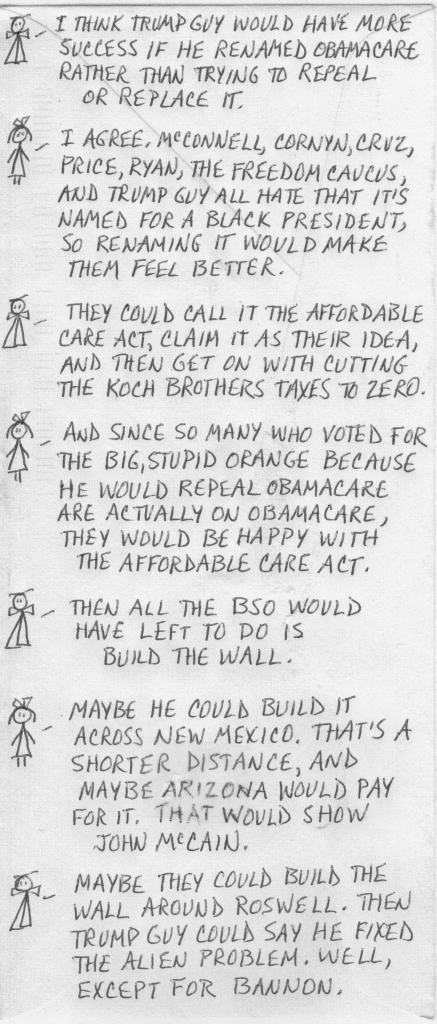 I THINK TRUMP GUY WOULD HAVE MORE
SUCCESS IF HE RENAMED OBAMACARE
RATHER THAN TRYING TO REPEAL
OR REPLACE IT.
I AGREE. McCONNELL, CORNYN, CRUZ,
PRICE, RYAN, THE FREEDOM CAUCUS,
AND TRUMP GUY ALL HATE THAT IT'S
NAMED FOR A BLACK PRESIDENT,
SO RENAMING IT WOULD MAKE
THEM FEEL BETTER.
THEY COULD CALL IT THE AFFORDABLE
CARE ACT, CLAIM IT AS THEIR IDEA,
AND THEN GET ON WITH CUTTING
THE KOCH BROTHERS TAXES TO ZERO.
AND SINCE SO MANY WHO VOTED FOR
THE BIG, STUPID ORANGE BECAUSE
HE WOULD REPEAL OBAMACARE
ARE ACTUALLY ON OBAMACARE,
THEY WOULD BE HAPPY WITH
THE AFFORDABLE CARE ACT.
THEN ALL THE BSO WOULD
HAVE LEFT TO DO IS
BUILD THE WALL.
MAYBE HE COULD BUILD IT
ACROSS NEW MEXICO. THAT'S A
SHORTER DISTANCE, AND
MAYBE ARIZONA WOULD PAY
FOR IT. THAT WOULD SHOW
JOHN McCAIN.
MAYBE THEY COULD BUILD THE
WALL AROUND ROSWELL. THEN
TRUMP GUY COULD SAY HE FIXED
THE ALIEN PROBLEM. WELL,
EXCEPT FOR BANNON.